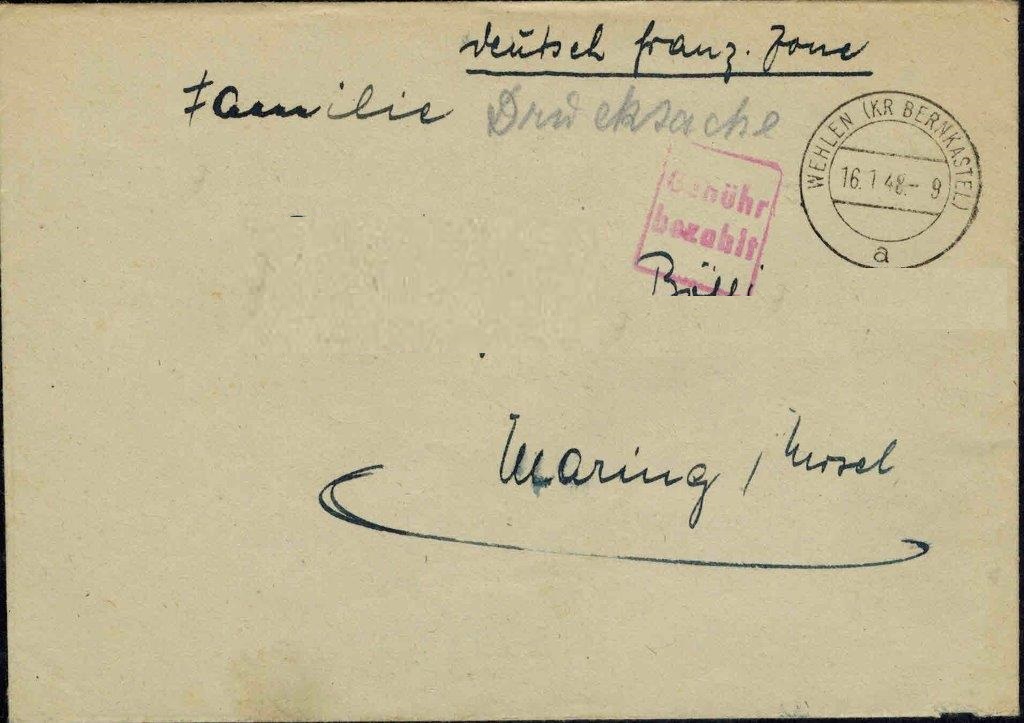 deutsch franz. Zone
Familie Drucksache
WEHLEN (KR BERNKASTEL)
16.1.48.-9
a
Gebühr
bezahlt
Maring / Mosel